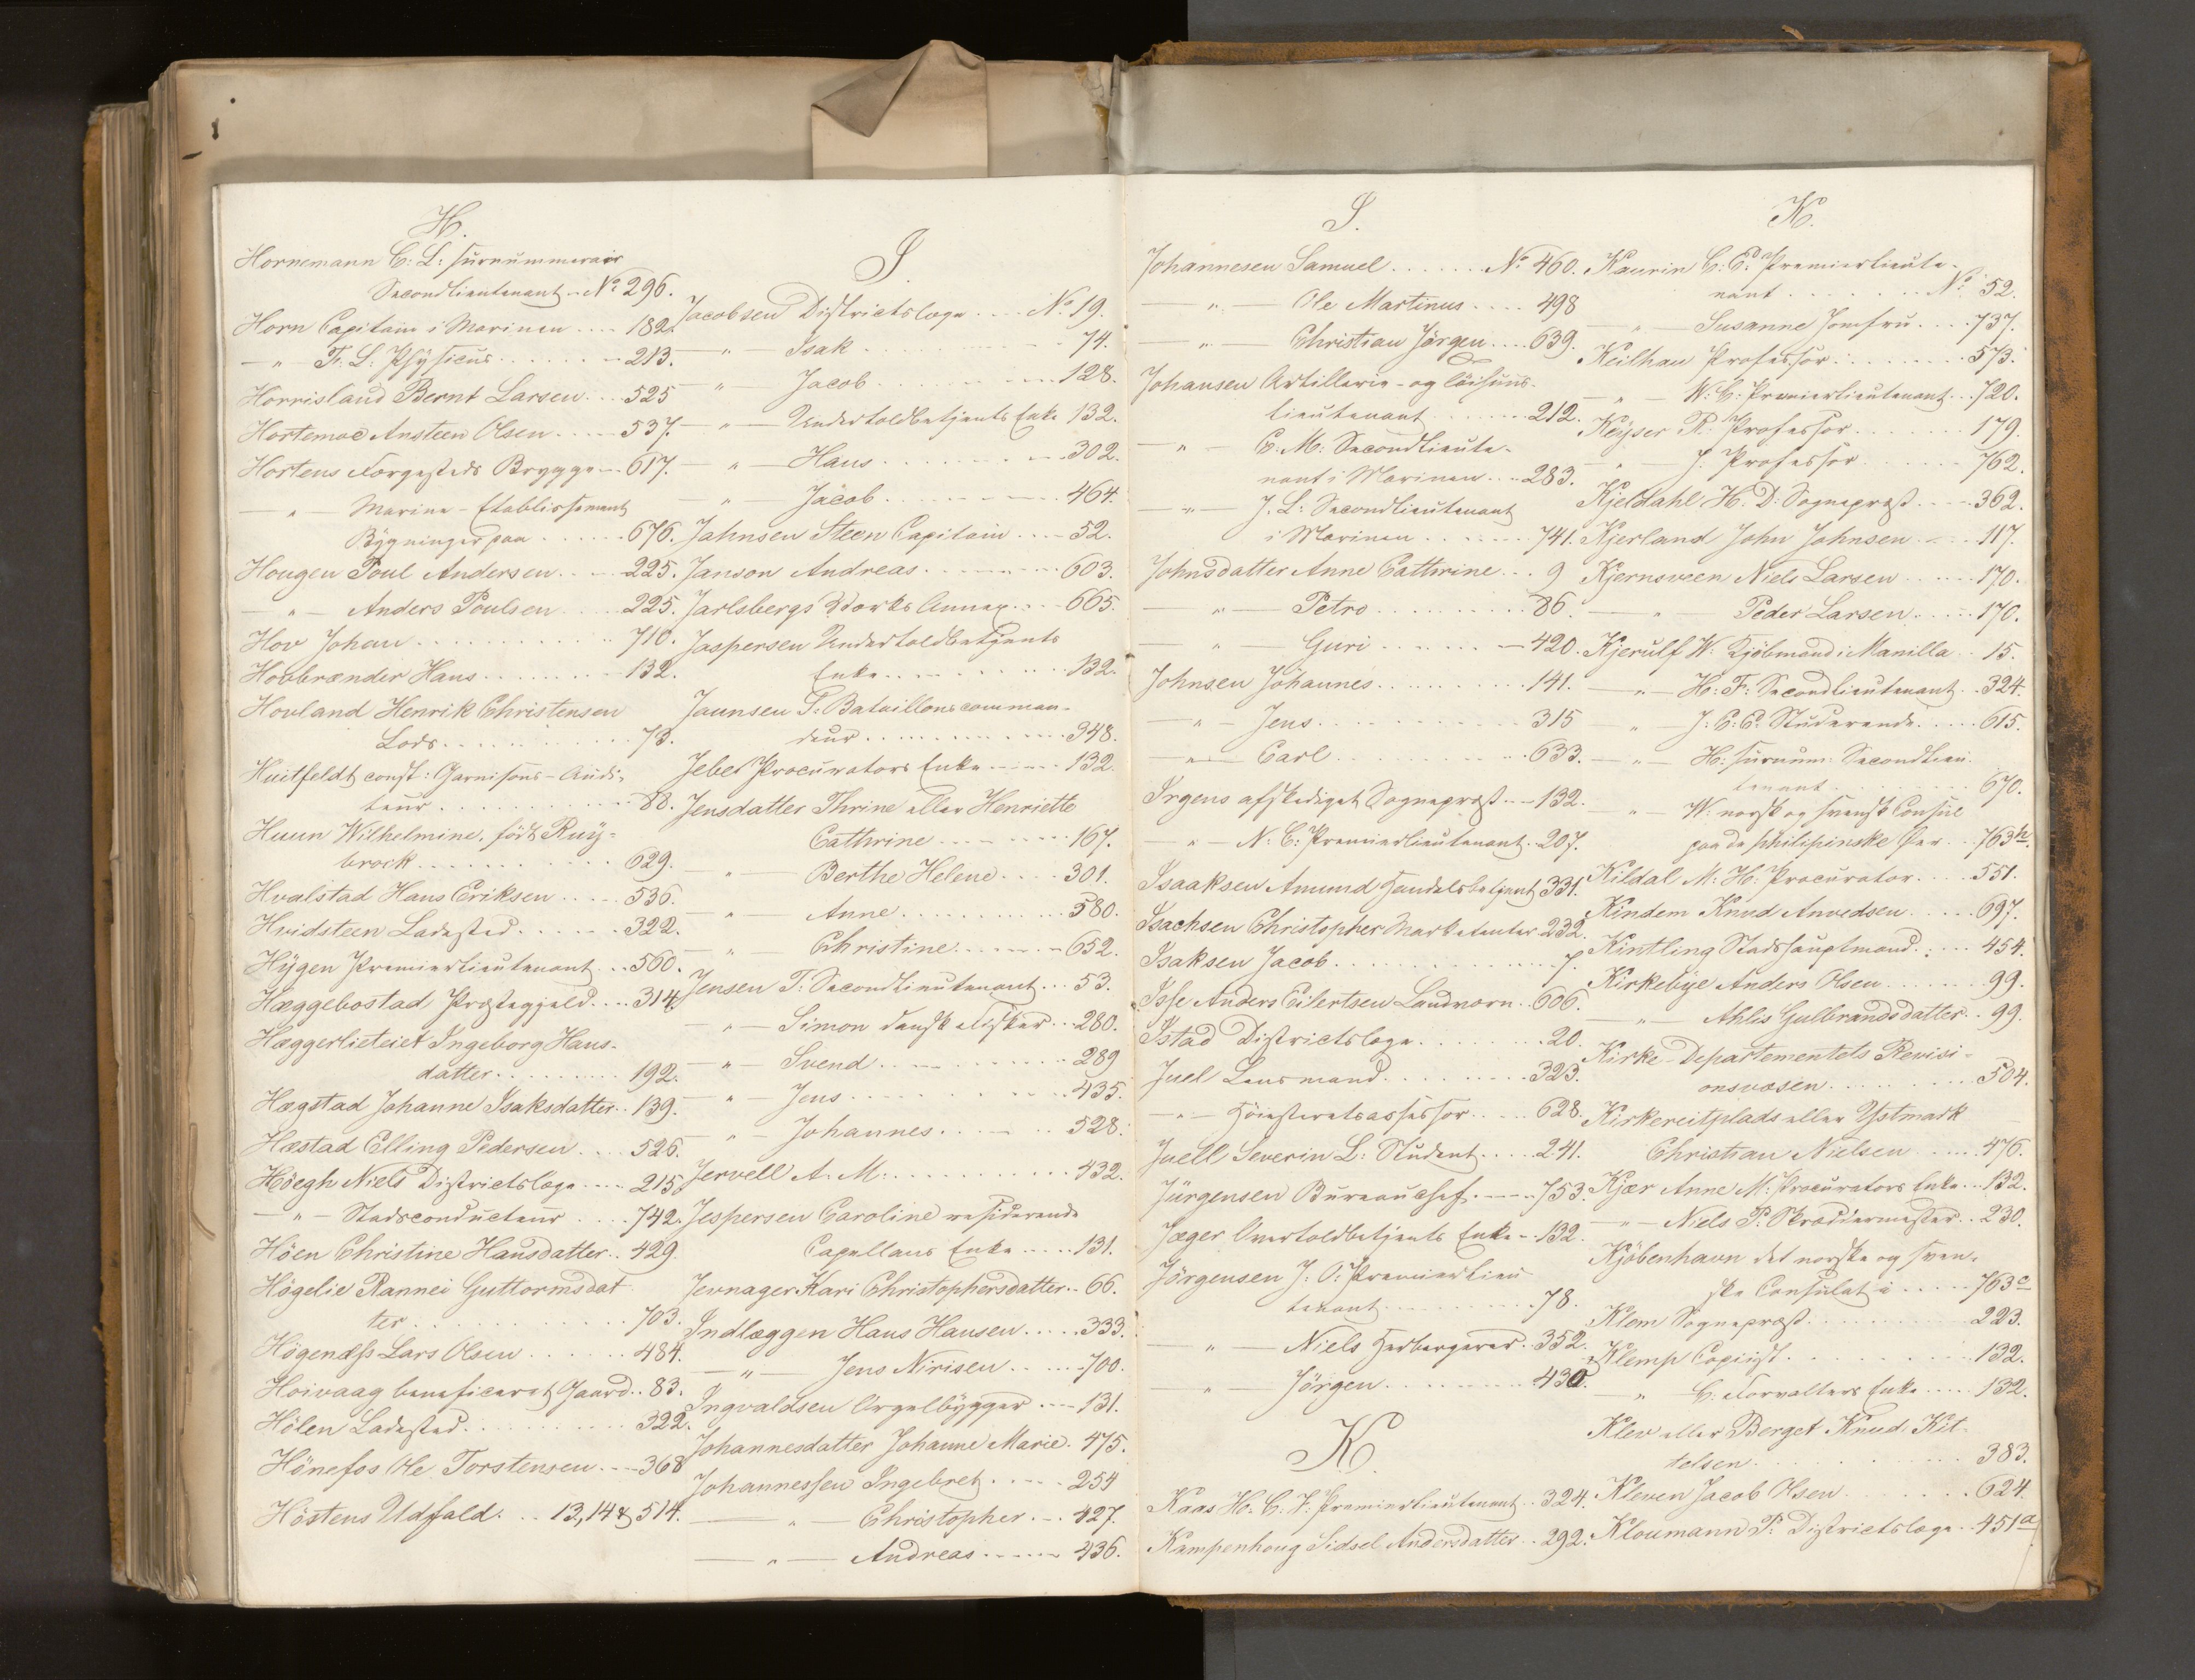 H.
Hornemann C: L: surnummerair
Secondlieutenant - No 296.
Horn Capitain i Marinen .... 182.
— " — Fr. L: Physicus ...... 213.
Horrisland Bernt Larsen .... 525
Hortemoe Ansteen Olsen ..... 537.
Hortens Norgesteds Brygge .. 617.
— " — Marine-Etablissement
Bygninger paa ...... 676.
Hougen Poul Andersen .... 225.
— " — Anders Poulsen .... 225.
Hov Johan ............ 710.
Hovbrænder Hans ........ 132.
Hovland Henrik Christensen
Lods ............ 73.
Huitfeldt const: Garnisons-Audi-
teur ............ 88.
Huun Wilhelmine, født Ruy-
brock ............ 629.
Hvalstad Hans Eriksen ..... 536.
Hvidsteen Ladested ...... 322.
Hygen Premierlieutenant ... 560.
Hæggebostad Præstegjeld .... 314.
Hæggerlieteiet Ingeborg Hans-
datter .......... 192.
Hægstad Johanne Isaksdatter .. 139.
Hæstad Elling Pedersen .... 526.
Höegh Niels Districtslæge .... 215
— " — Stadsconducteur .... 742.
Höen Christine Hansdatter .. 429.
Högelie Rannei Guttormsdat
ter ............ 703.
Högenæss Lars Olsen ...... 484.
Hoivaag beneficeret Gaard .. 83.
Hölen Ladested ......... 322.
Hönefos Ole Torstensen .... 368
Höstens Udfald. .. 13, 14 & 514.
J.
Jacobsen Districtslæge .... No 19.
— " — Isak ............ 74.
— " — Jacob .......... 128.
— " — Undertoldbetjents Enke 132.
— " — Hans .......... 302.
— " — Jacob .......... 464.
Jahnsen Steen Capitain .... 52.
Janson Andreas ......... 603.
Jarlsbergs Værks Annex .... 665.
Jaspersen Undertoldbetjents
Enke .......... 132.
Jaunsen T: Bataillonscomman-
deur ............ 348.
Jebes Procurators Enke ..... 132.
Jensdatter Thrine eller Henriette
Cathrine ........ 167.
— " — Berthe Helene .... 301.
— " — Anne .......... 580.
— " — Christine ...... 652.
Jensen T: Secondlieutenant ... 53.
— " — Simon dansk Fisker ... 280.
— " — Svend ......... 289
— " — Jens .......... 435.
— " — Johannes ...... 528.
Jervell A. M: ........... 432.
Jespersen Caroline residerende
Capellans Enke ..... 131.
Jevnager Kari Christophersdatter .. 66.
Indlæggen Hans Hansen ..... 333.
— " — Jens Nirisen ..... 700.
Ingvaldsen Orgelbygger .... 131.
Johannesdatter Johanne Marie . 475.
Johannessen Ingebret ..... 254
— " — Christopher ... 427.
— " — Andreas ...... 436.
J.
Johannesen Samuel ....... No 460.
— " — Ole Martinus .... 498
— " — Christian Jörgen .... 639.
Johansen Artillerie- og Töihuus-
lieutenant ....... 212.
— " — C. M: Secondlieute-
nant i Marinen ... 283.
— " — J. L: Secondlieutenant
i Marinen ....... 741.
Johnsdatter Anne Cathrine ... 9
— " — Petro ......... 86.
— " — Guri ........ 420.
Johnsen Johannes .......... 141.
— " — Jens .......... 315
— " — Carl .......... 633.
Irgens afskediget Sogneprest .. 132.
— " — N: C: Premierlieutenant . 207.
Isaaksen Amund Handelsbetjent 331.
Isachsen Christopher Marketenter 232.
Isaksen Jacob .......... 7.
Isse Anders Eilertsen Landværn .. 606.
Istad Districtslæge ........ 20.
Juel Lensmand .......... 323.
— " — Höiesteretsassessor ..... 628.
Juell Severin L: Student ..... 241.
Jürgensen Bureauchef ...... 753.
Jæger Overtoldbetjents Enke .. 132.
Jörgensen J: O: Premierlieu
tenant ......... 78.
— " — Niels Herbergerer . 352.
— " — Jörgen ......... 430.
K.
Kaas H. C. F: Premierlieutenant .. 324.
Kampenhoug Sidsel Andersdatter .. 292.
K.
Kaurin C: E: Premierlieute-
nant ........ No 52.
— " — Susanne Jomfru .... 737.
Keilhau Professor ........ 573.
— " — W: C: Premierlieutenant .. 720.
Keyser R: Professor ....... 179.
— " — J. Professor ...... 762.
Kjeldahl H. D: Sogneprest .... 362.
Kjerland John Johnsen .... 117.
Kjernsveen Niels Larsen ...... 170.
— " — Peder Larsen ..... 170.
Kjerulf W. Kjöbmand i Manilla .. 15.
— " — H: F: Secondlieutenant .. 324.
— " — J: C: E: Studerende ..... 615.
— " — H: surnum: Secondlieu
tenant ........ 670.
— " — W: norsk og svensk Consul
paa de philipinske Öer .. 763h.
Kildal M: H: Procurator .... 551.
Kindem Knud Anvedsen ..... 697.
Kintling Stadshauptmand .... 454.
Kirkebye Anders Olsen ....... 99.
— " — Ahlis Gulbrandsdatter .. 99.
Kirke-Departementets Revisi-
onsvæsen ........ 504.
Kirkereitplads eller Ystmark
Christian Nielsen ..... 476.
Kjær Anne M: Procurators Enke .. 132.
— " — Niels P: Skræddermester .. 230.
Kjöbenhavn det norske og sven-
ske Consulat i ..... 763c
Klem Sogneprest .......... 223.
Klemp Copiist .......... 132.
— " — C: Forvalters Enke ..... 132.
Klev eller Berget Knud Kit-
telsen .......... 383.
Kleven Jacob Olsen ....... 624.
Kloumann P: Districtslæge .. 451a